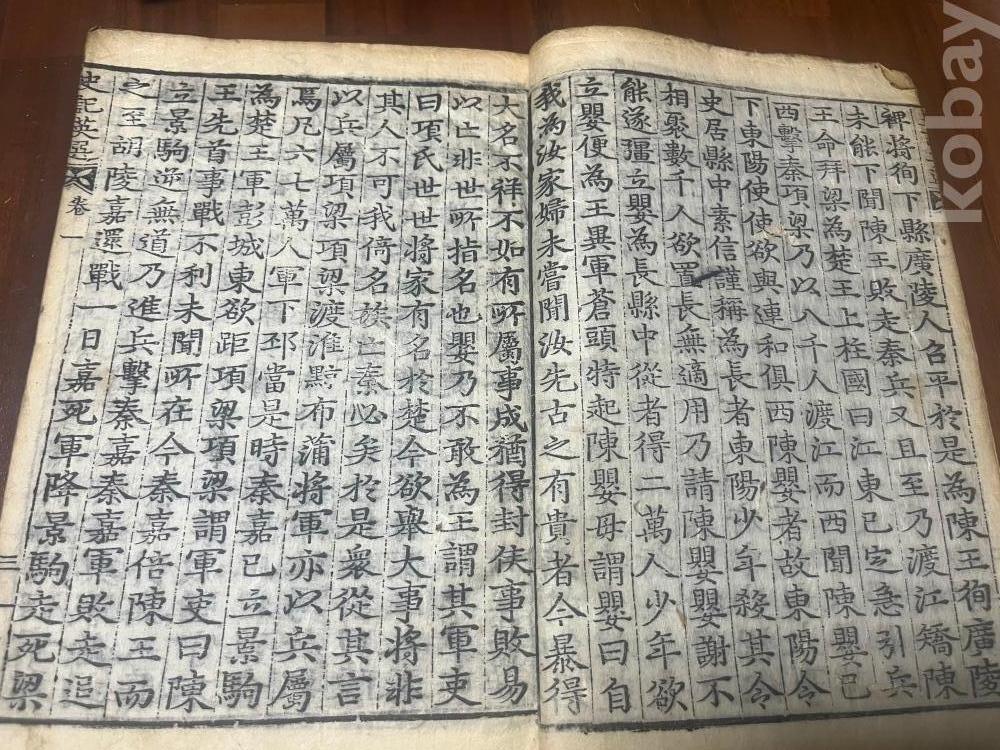 裨將徇下縣廣陵人召平於是為陳王徇廣陵
未能下聞陳王敗走秦兵又且至乃渡江矯陳
王命拜梁為楚王上柱國曰江東已定急引兵
西擊秦項梁乃以八千人渡江而西聞陳嬰已
下東陽使使欲與連和俱西陳嬰者故東陽令
史居縣中素信謹稱為長者東陽少年殺其令
相聚數千人欲置長無適用乃請陳嬰嬰謝不
能遂彊立嬰為長縣中從者得二萬人少年欲
立嬰便為王異軍蒼頭特起陳嬰母謂嬰曰自
我為汝家婦未嘗聞汝先古之有貴者今暴得
大名不祥不如有所屬事成猶得封侯事敗易
以亡非世所指名也嬰乃不敢為王謂其軍吏
曰項氏世世將家有名於楚今欲舉大事將非
其人不可我倚名族亡秦必矣於是衆從其言
以兵屬項梁項梁渡淮黥布蒲將軍亦以兵屬
焉凡六七萬人軍下邳當是時秦嘉已立景駒
為楚王軍彭城東欲距項梁項梁謂軍吏曰陳
王先首事戰不利未聞所在今秦嘉倍陳王而
立景駒逆無道乃進兵擊秦嘉秦嘉軍敗走追
之至胡陵嘉還戰一日嘉死軍降景駒走死梁
史記英選 卷一 三
kobay